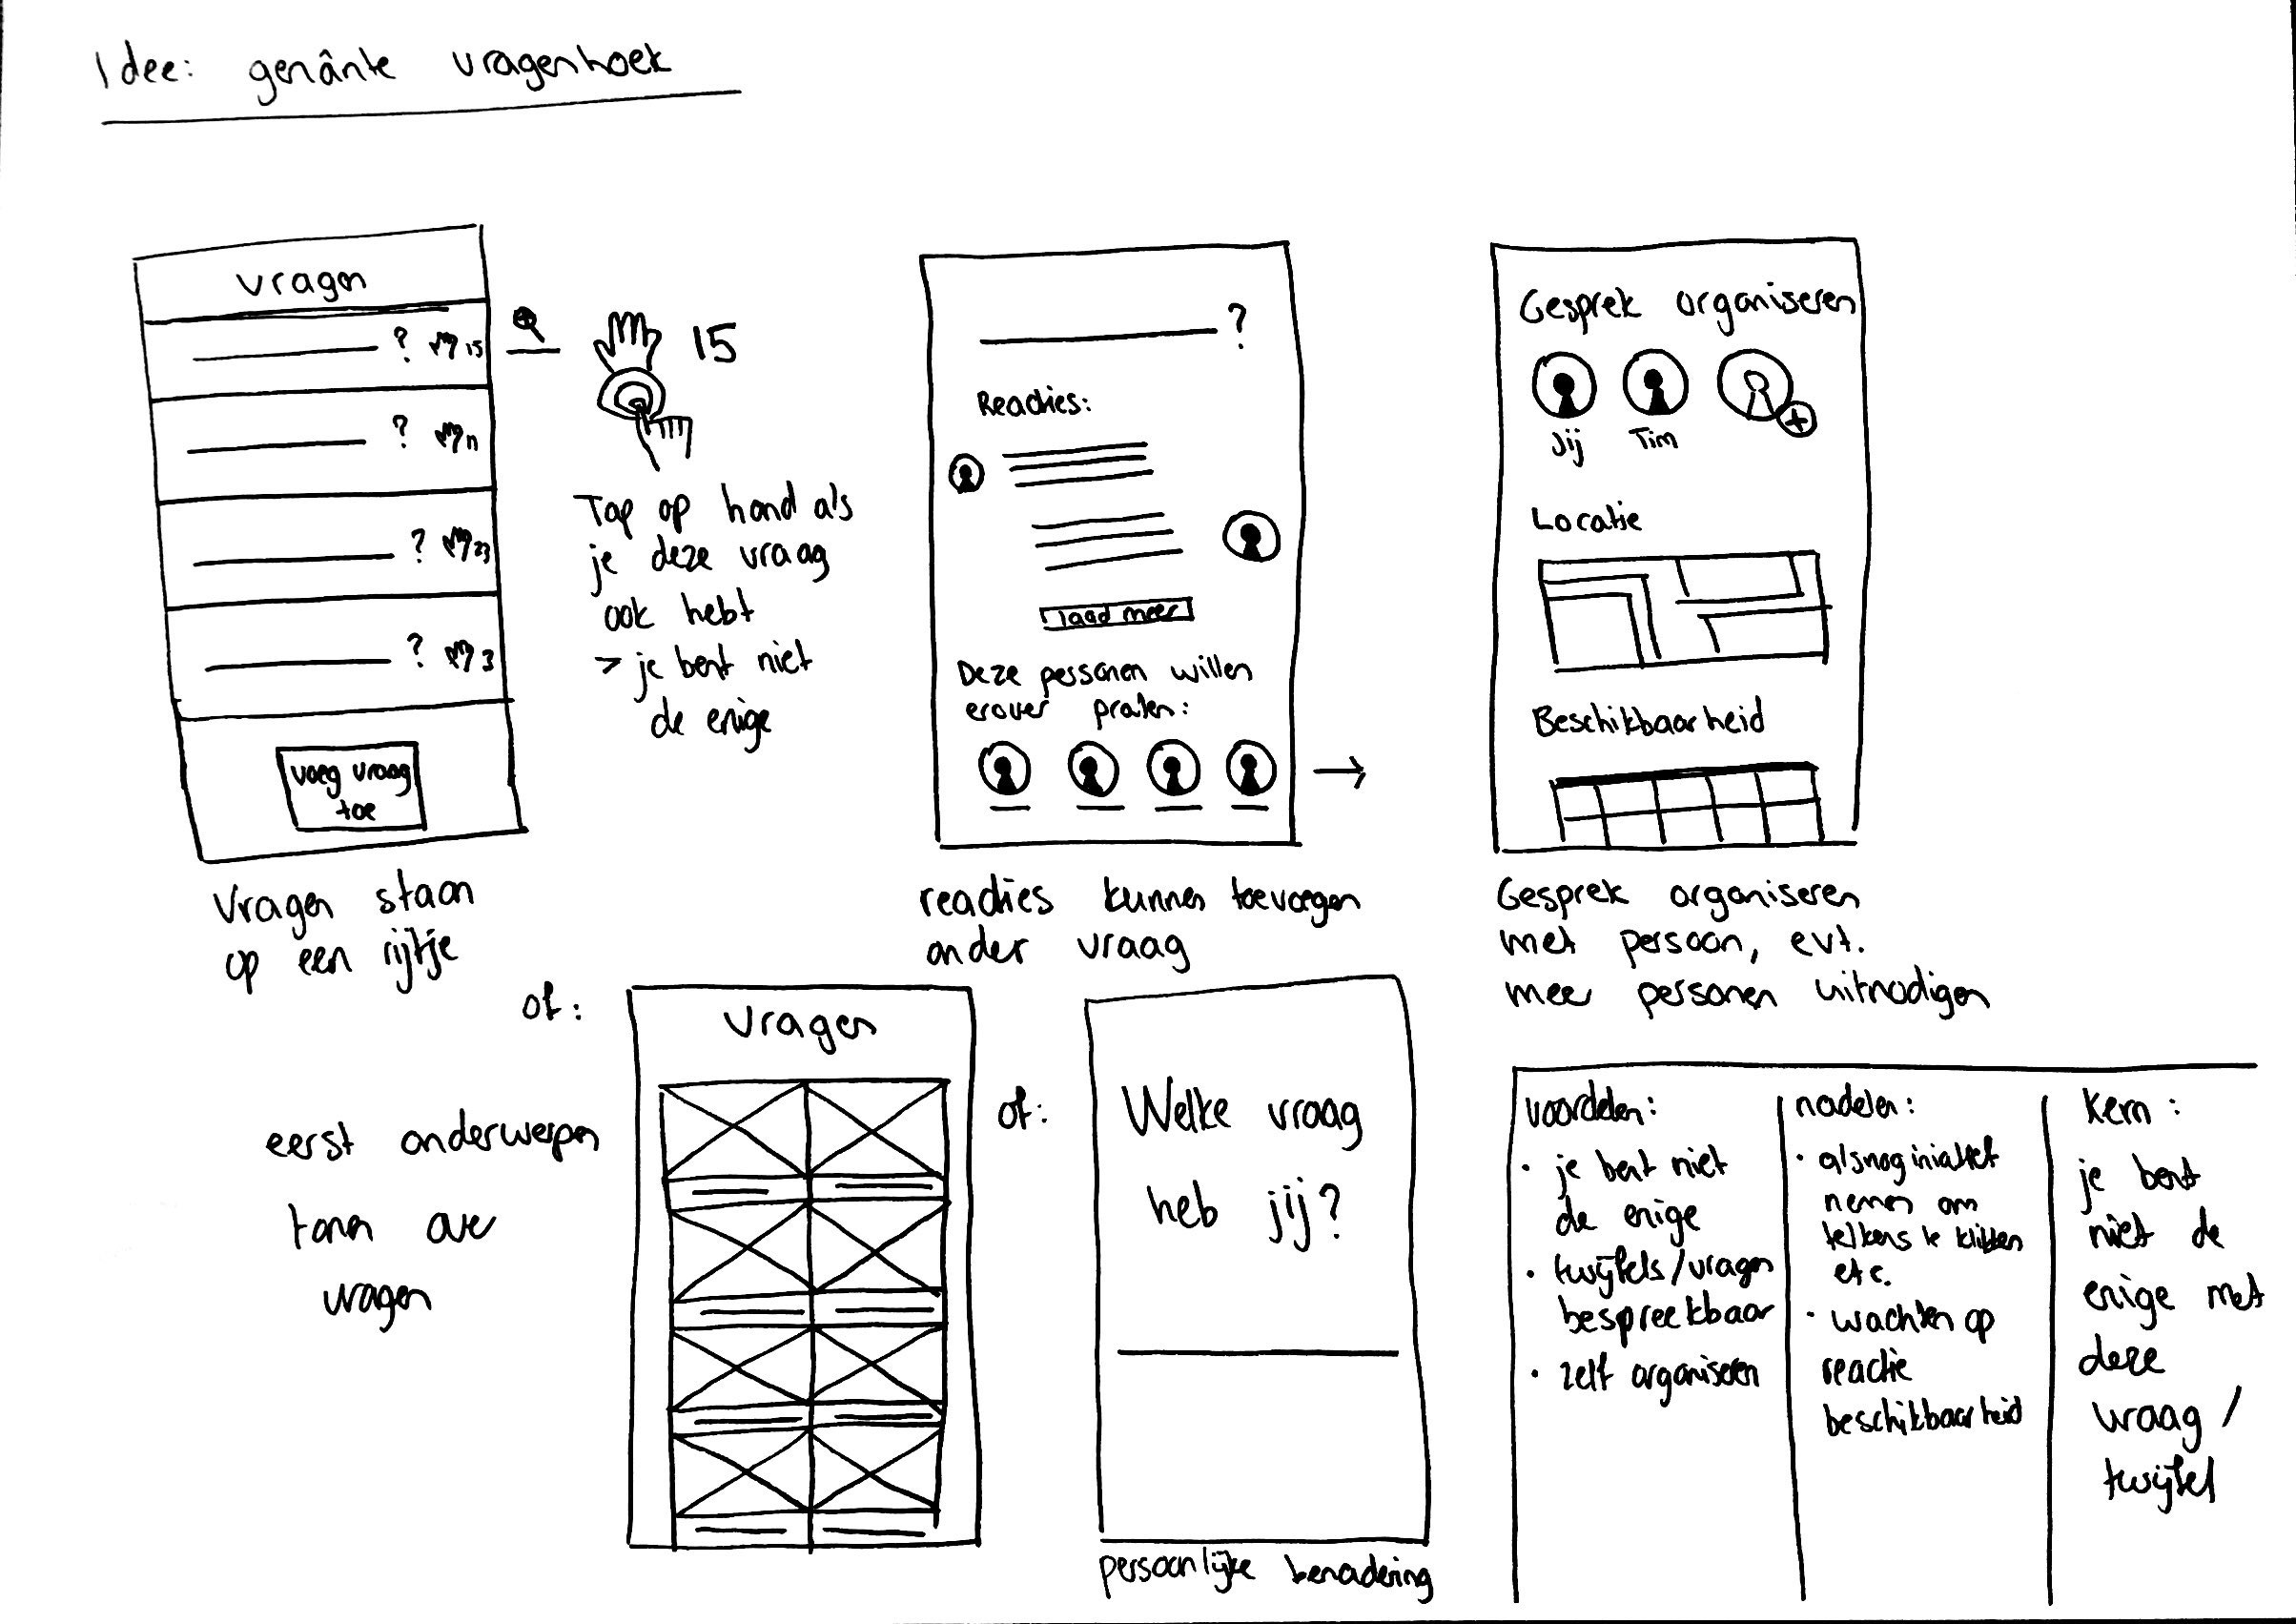 Idee: genânte vragenhoek
vragen
? 15
? 11
? 23
? 3
voeg vraag
toe
15
Tap op hand als
je deze vraag
ook hebt
> je bent niet
de enige
Vragen staan
op een rijtje
?
Reacties:
laad meer
Deze personen willen
erover praten:
→
reacties kunnen toevoegen
onder vraag
Gesprek organiseren
Jij Tim
+
Locatie
Beschikbaarheid
Gesprek organiseren
met persoon, evt.
meer personen uitnodigen
of:
eerst onderwerpen
tonen over
vragen
Vragen
of:
Welke vraag
heb jij?
persoonlijke benadering
voordelen:
· je bent niet
de enige
· twijfels/vragen
bespreekbaar
· zelf organiseren
nadelen:
· alsnog iniatief
nemen om
telkens te klikken
etc.
· wachten op
reactie
beschikbaarheid
kern:
je bent
niet de
enige met
deze
vraag/
twijfel